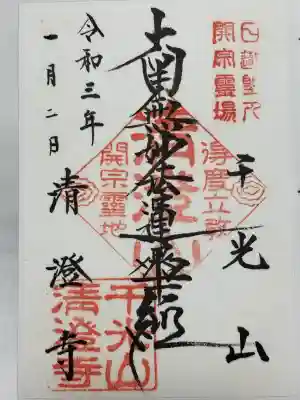 日蓮聖人
開宗霊場
千光山
得度立教
南無妙法蓮華経
清澄山
開宗霊地
清澄寺
令和三年
一月二日
千光山
清澄寺